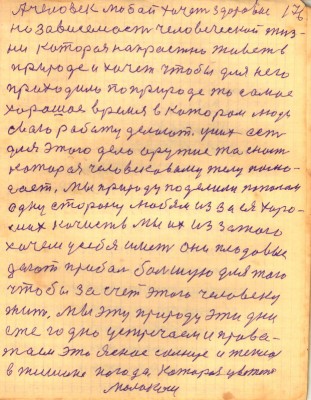 176
А человек любой хочет здоровье
независемость человеческой жиз-
ни которая напрасно живет в
природе и хочет чтобы для него
приходило по природе то самое
хорошое время в котором люди
свою работу делают. у них есть
для этого дела оружие та снасть
которая человековому телу помо-
гает. Мы природу поделили пополам
одну сторону любим из за ея хоро-
ших качеств мы их из за того
хочем у себя иметь они плодовые
дают прибыл большую для того
чтобы за счет этого человеку
жить. Мы эту природу эти дни
еже годно устречаем и прова-
жаем это ясное солнце и тепло
в тишине погода которая цветет